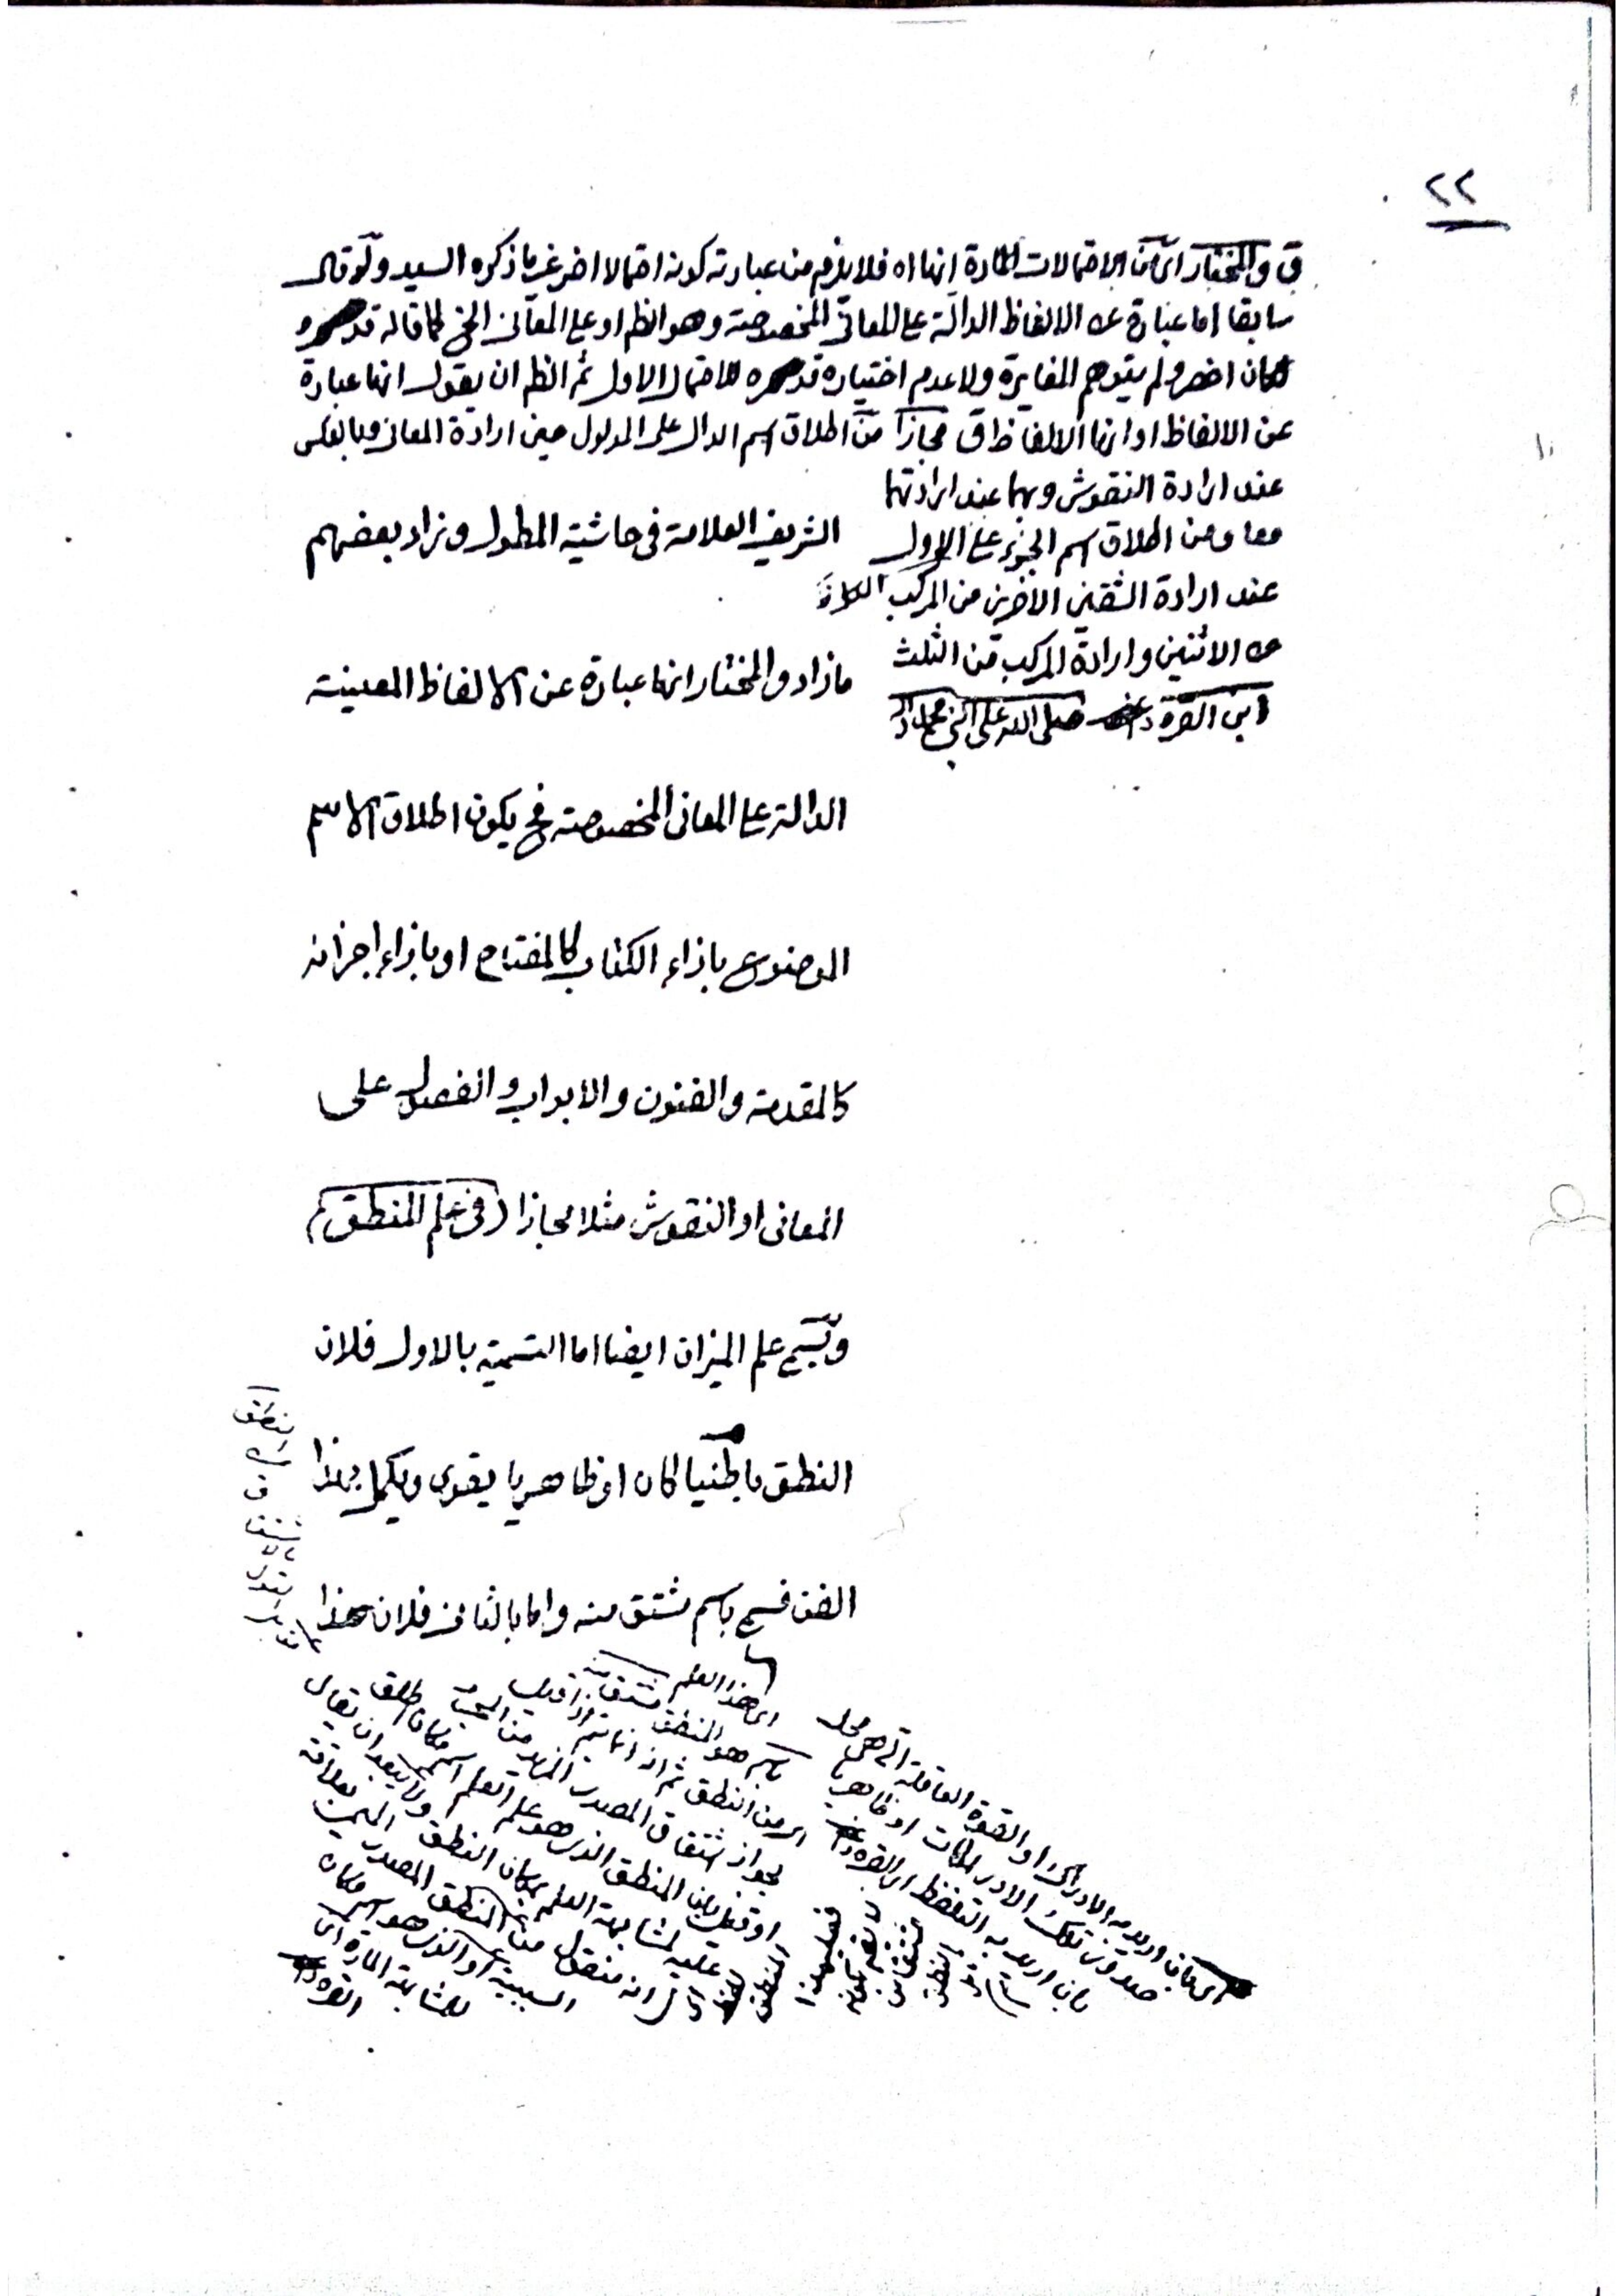 ٢٢
ق والمختار اى من الاحتمالات المارة انها اه فلا يلزم من عبارته كونه احتمالا اخر غير ما ذكره السيد ولو قال
سابقا اما عبارة عن الالفاظ الدالة على المعانى المخصوصة وهو الظ او على المعانى الخ كما قاله قد سره
لكان اخصر ولم يتوهم المغايرة ولا عدم اختياره قد سره للاحتمال الاول ثم الظ ان يقول انها عبارة
عن الالفاظ او انها الالفاظ ق مجازا من اطلاق اسم الدال على المدلول حين ارادة المعانى وبالعكس
عند ارادة النقوش وبهما عند ارادتهما
معا ومن اطلاق اسم الجزء على الاول
عند ارادة الشقين الاخرين من المركب
من الاثنين وارادة المركب من الثلث
ابن القره داغى صلى الله على النبى محمد وآله
الشريف العلامة فى حاشية المطول وزاد بعضهم
ما زاد والمختار انها عبارة عن الالفاظ المعينة
الدالة على المعانى المخصوصة فح يكون اطلاق الاسم
الموضوع بازاء الكتاب كالمفتاح او بازاء اجزائه
كالمقدمة والفنون والابواب والفصول على
المعانى او النقوش مثلا مجازا (فى علم المنطق)
ويسمى علم الميزان ايضا اما التسمية بالاول فلان
النطق باطنيا كان او ظاهريا يقوى ويكمل بهذا
الفن فسمى باسم مشتق منه واما بالثانى فلان هذا
اى هذا العلم
باسم هو المنطق مشتق
اى من النطق ثم انه انما يتم اذا قيل
بجواز اشتقاق المصدر المزيد من المجرد
او قيل بان المنطق الذى هو علم العلم اسم مكان اطلق
عليه لمشابهة العلم بمكان النطق ولا يبعد ان يقال
انه منقول من المنطق المصدر الميمى بعلاقة
السببية او الذى هو اسم مكان
للمشابهة المارة اى
القره داغى
اى بان اريد به الادراك او القوة العاقلة التى هى محل
صدور تلك الادراكات او ظاهريا
بان اريد به التلفظ ابن القره داغى